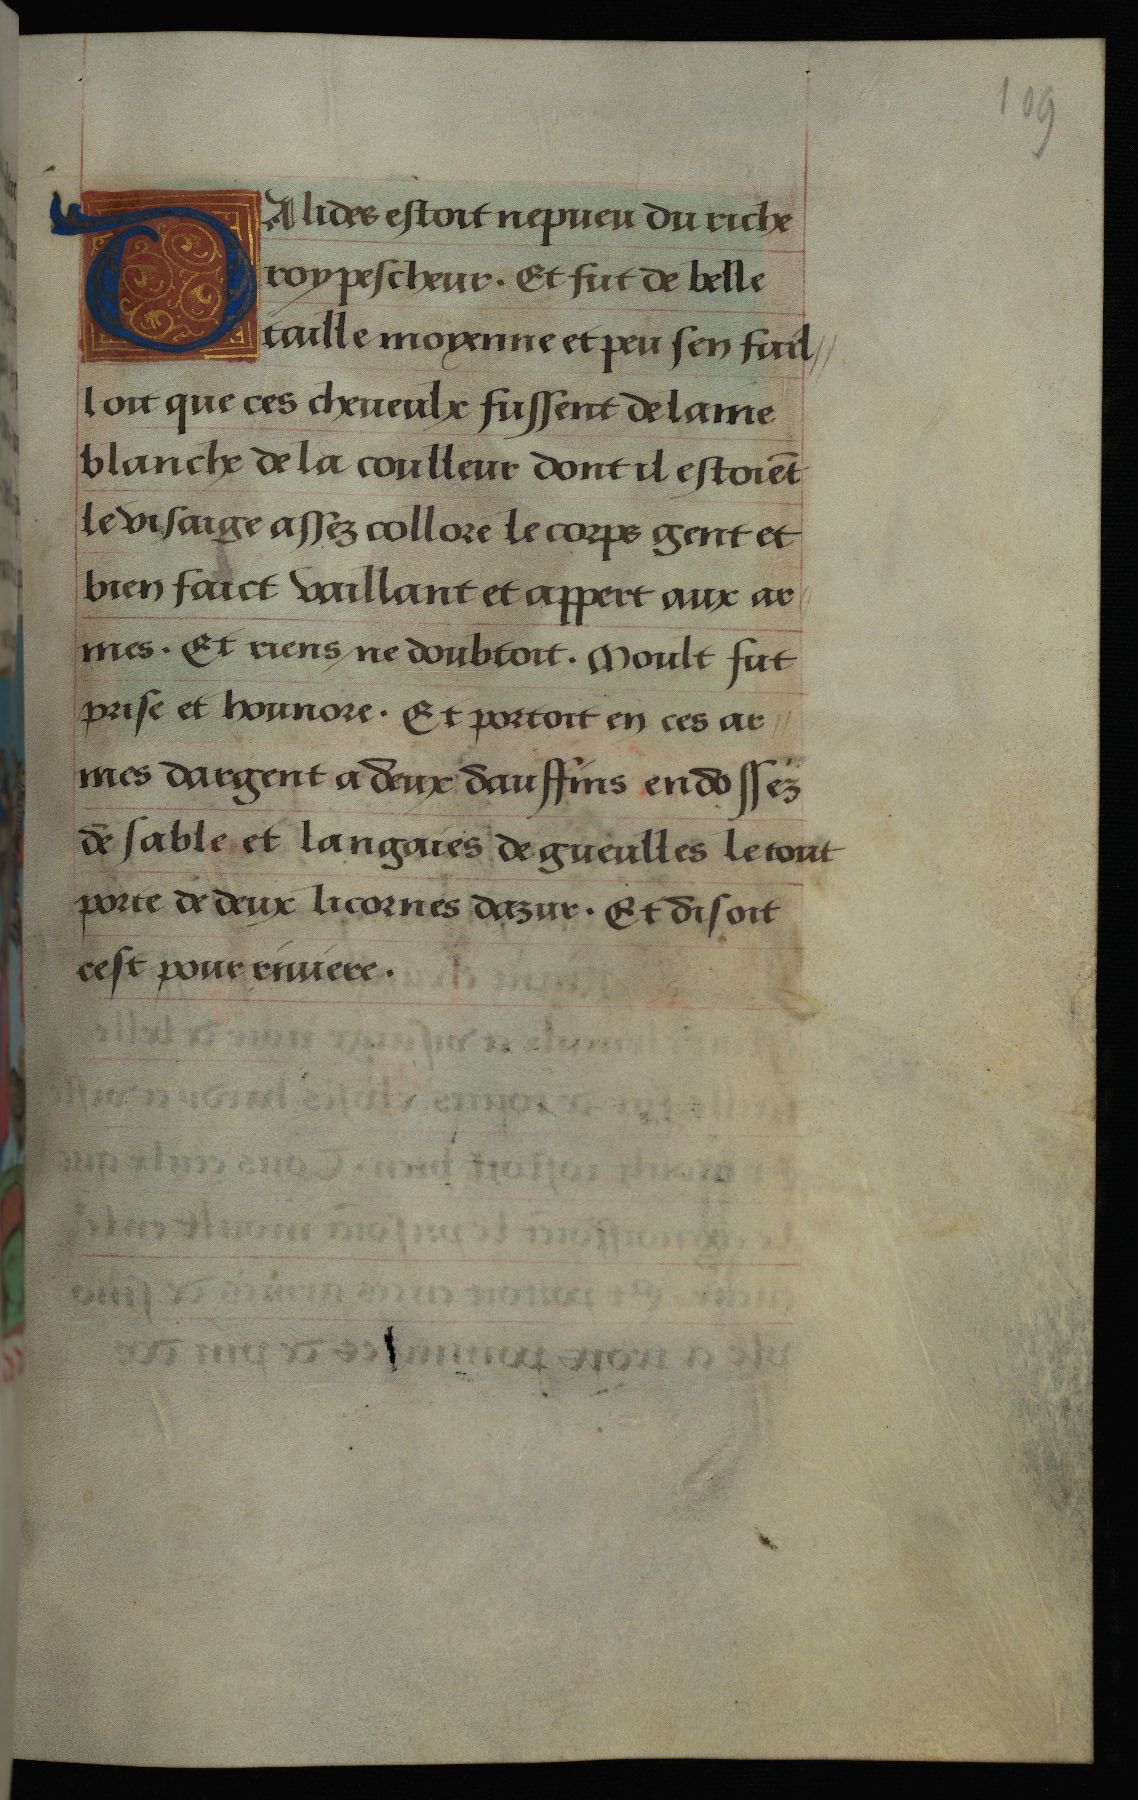 109
DAlides estoit nepueu du riche
roy pescheur. Et fut de belle
taille moyenne et peu sen fail//
loit que ces cheueulx fussent de laine
blanche de la coulleur dont il estoiēt
le visaige assez collore le corps gent et
bien faict vaillant et appert aux ar/
mes. Et riens ne doubtoit. Moult fut
prise et hounore. Et portoit en ces ar//
mes dargent a deux dauffins endossez
de sable et langaies de gueulles le tout
porte de deux licornes dazur. Et disoit
cest pour riuiere.